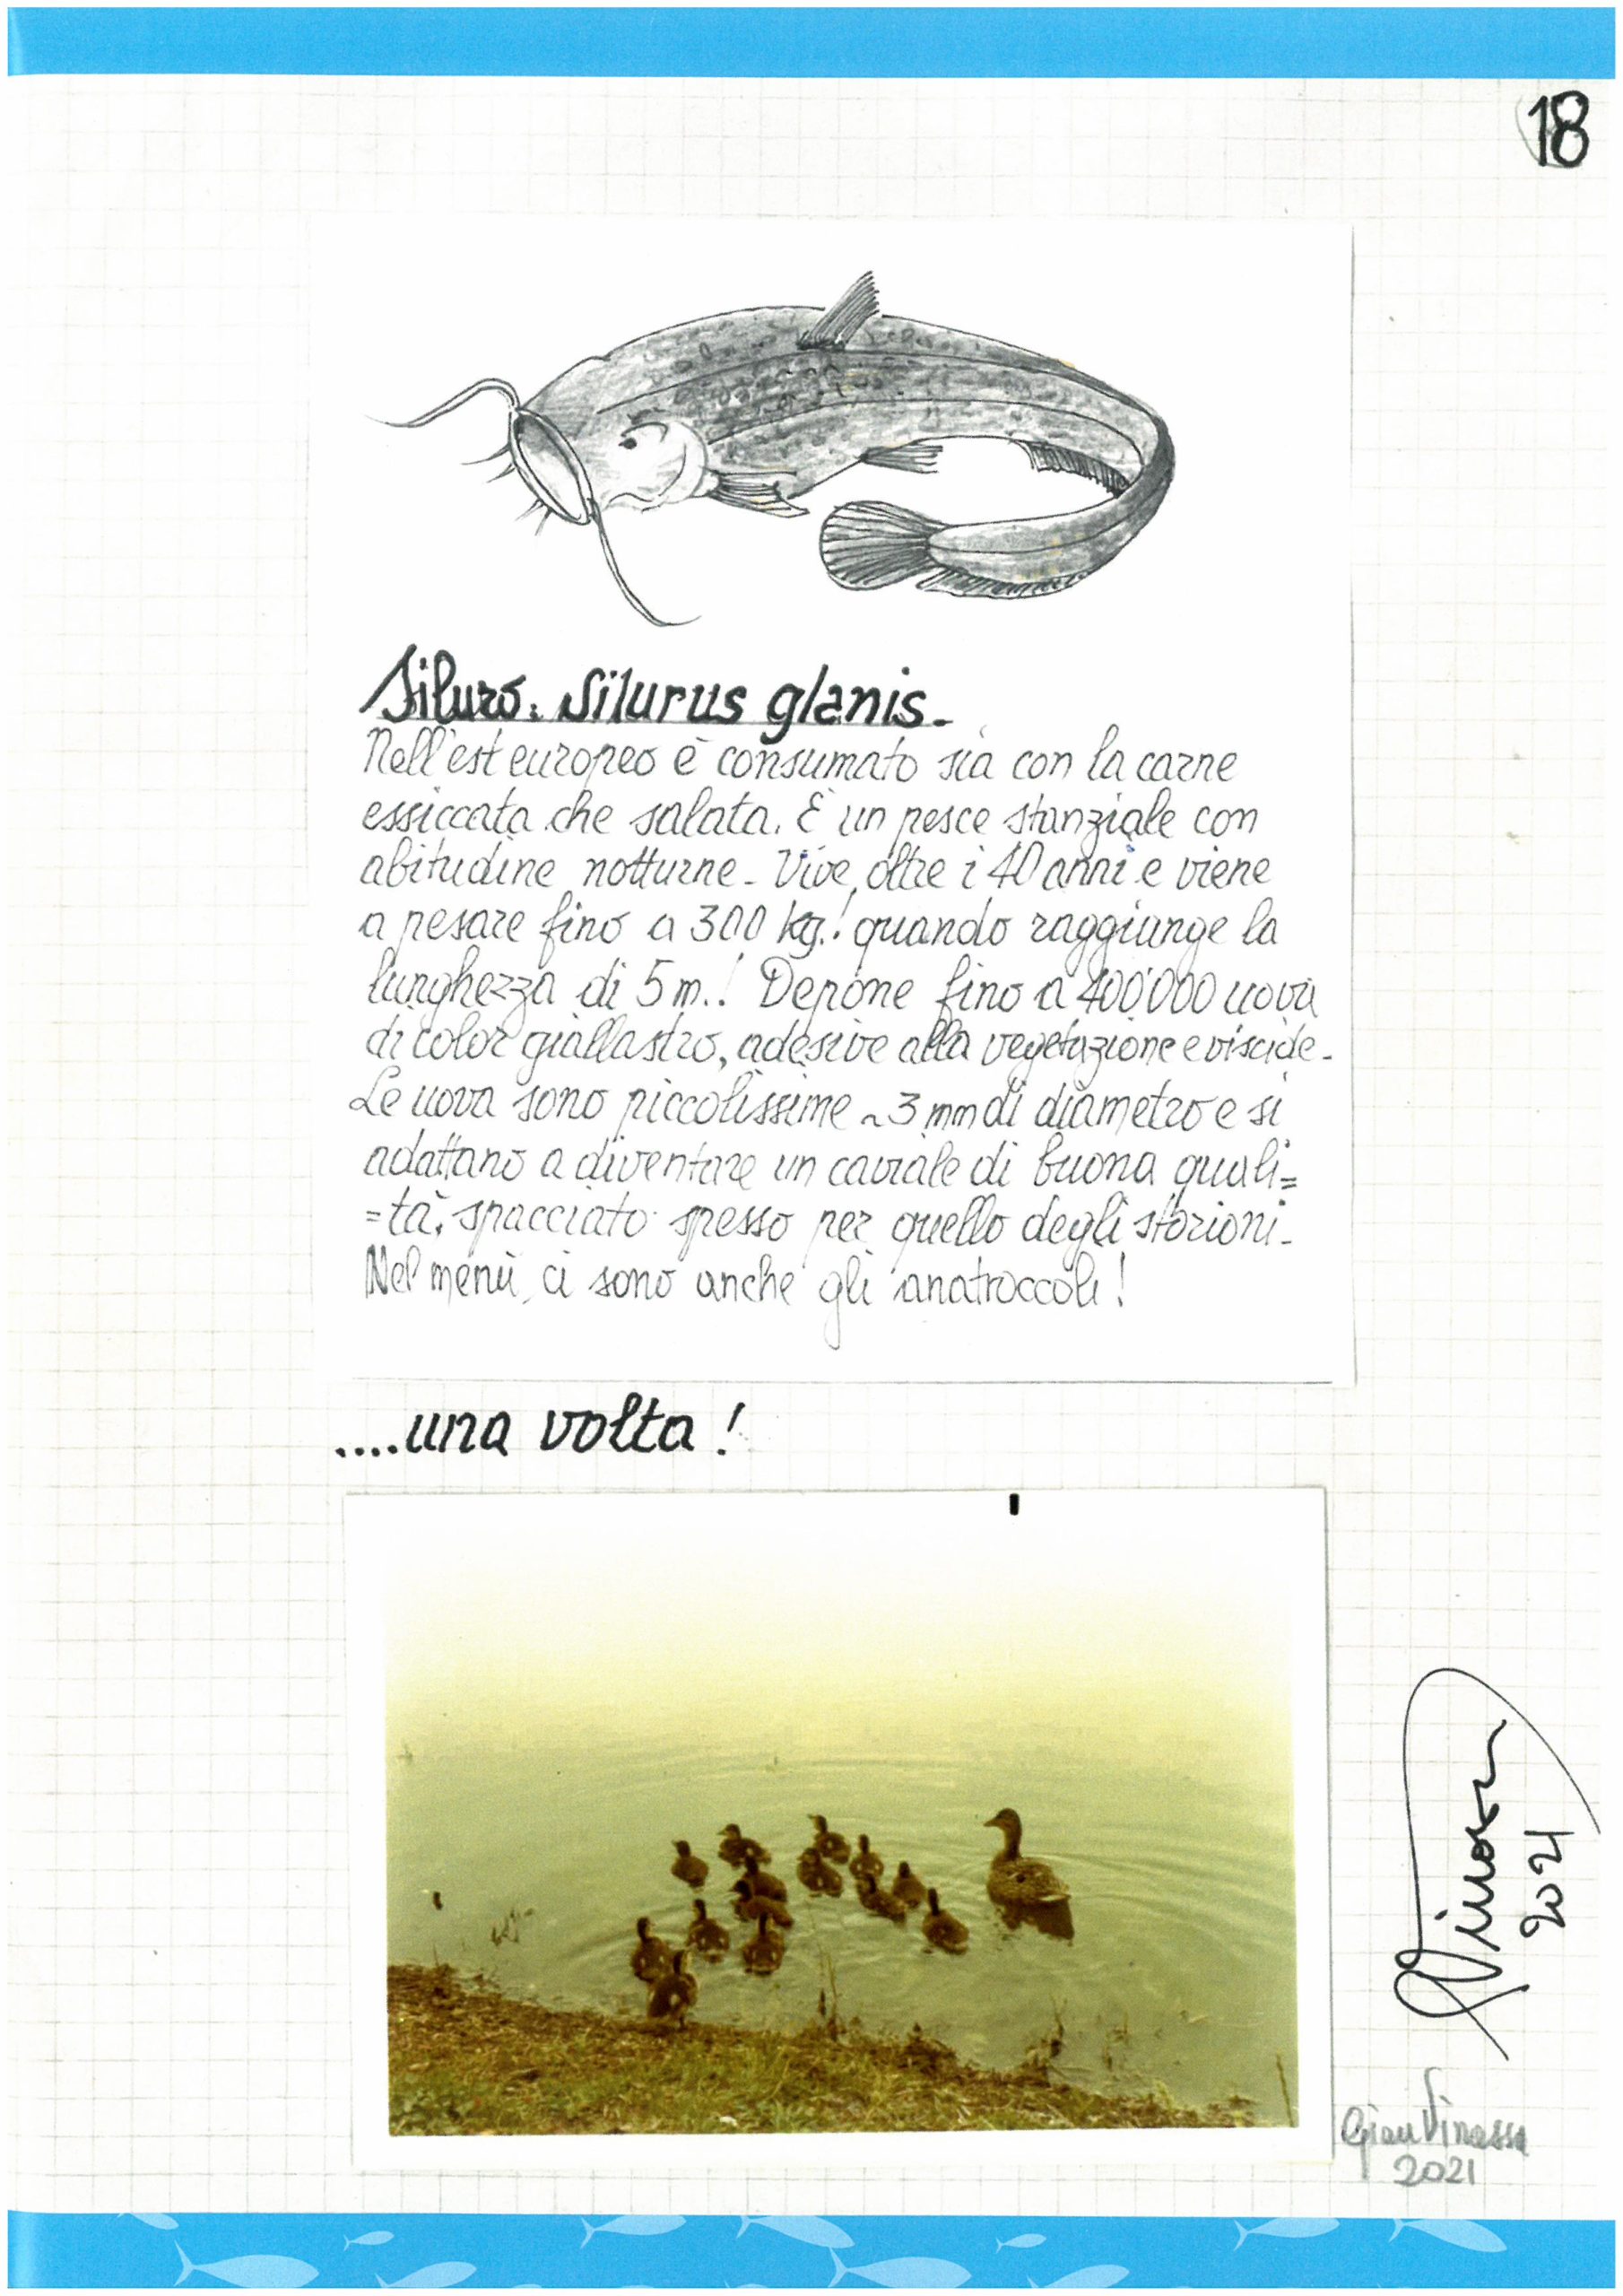 18
Siluro: Silurus glanis.
Nell'est europeo è consumato sia con la carne
essiccata che salata. È un pesce stanziale con
abitudine notturne. Vive oltre i 40 anni e viene
a pesare fino a 300 kg.! quando raggiunge la
lunghezza di 5 m.! Depone fino a 400'000 uova
di color giallastro, adesive alla vegetazione e viscide.
Le uova sono piccolissime ~3 mm di diametro e si
adattano a diventare un caviale di buona quali=
=tà, spacciato spesso per quello degli storioni.
Nel menù ci sono anche gli anatroccoli!
....una volta!
Vinassa
2021
Gian Vinassa
2021